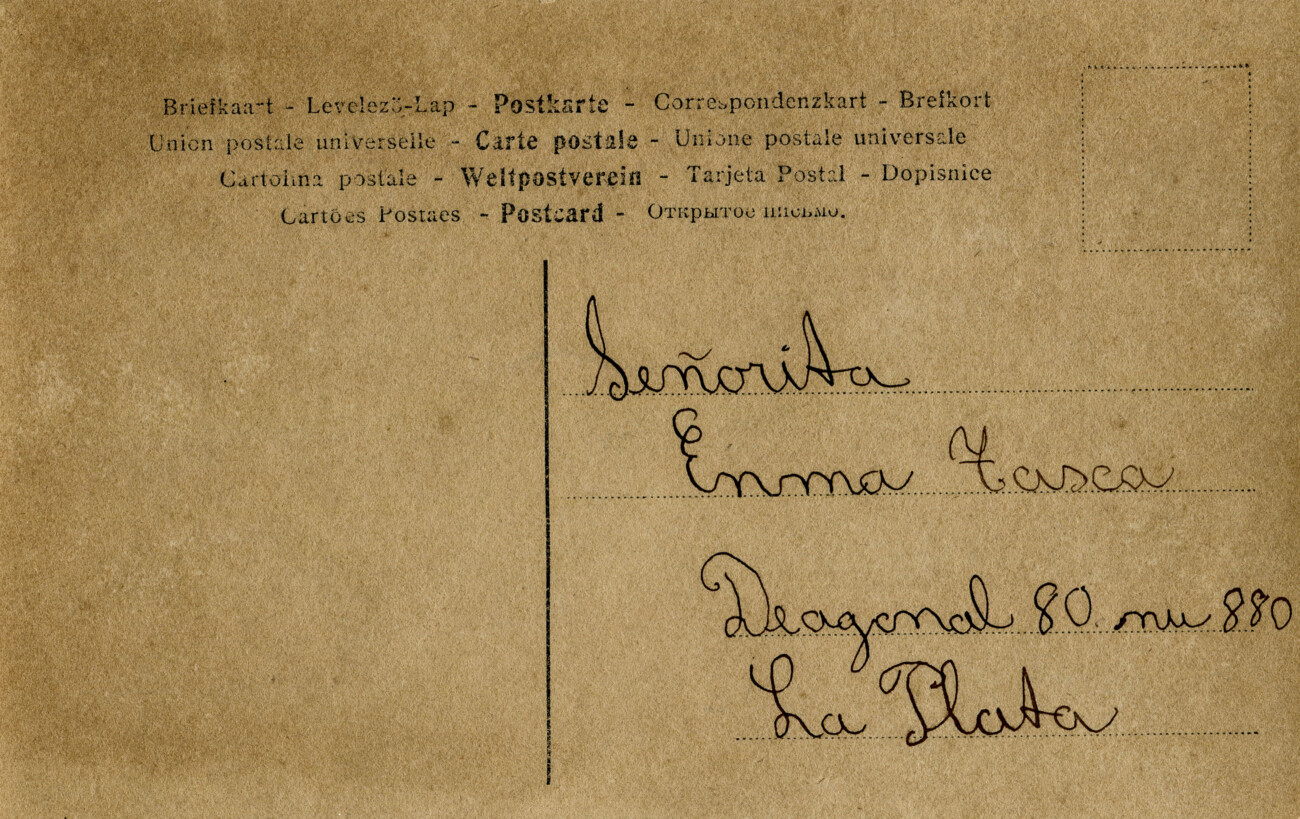 Briefkaart - Levelező-Lap - Postkarte - Correspondenzkart - Brefkort
Union postale universelle - Carte postale - Unione postale universale
Cartolina postale - Weltpostverein - Tarjeta Postal - Dopisnice
Cartões Postaes - Postcard - Открытое письмо.
Señorita
Enma Tasca
Deagonal 80 nu 880
La Plata